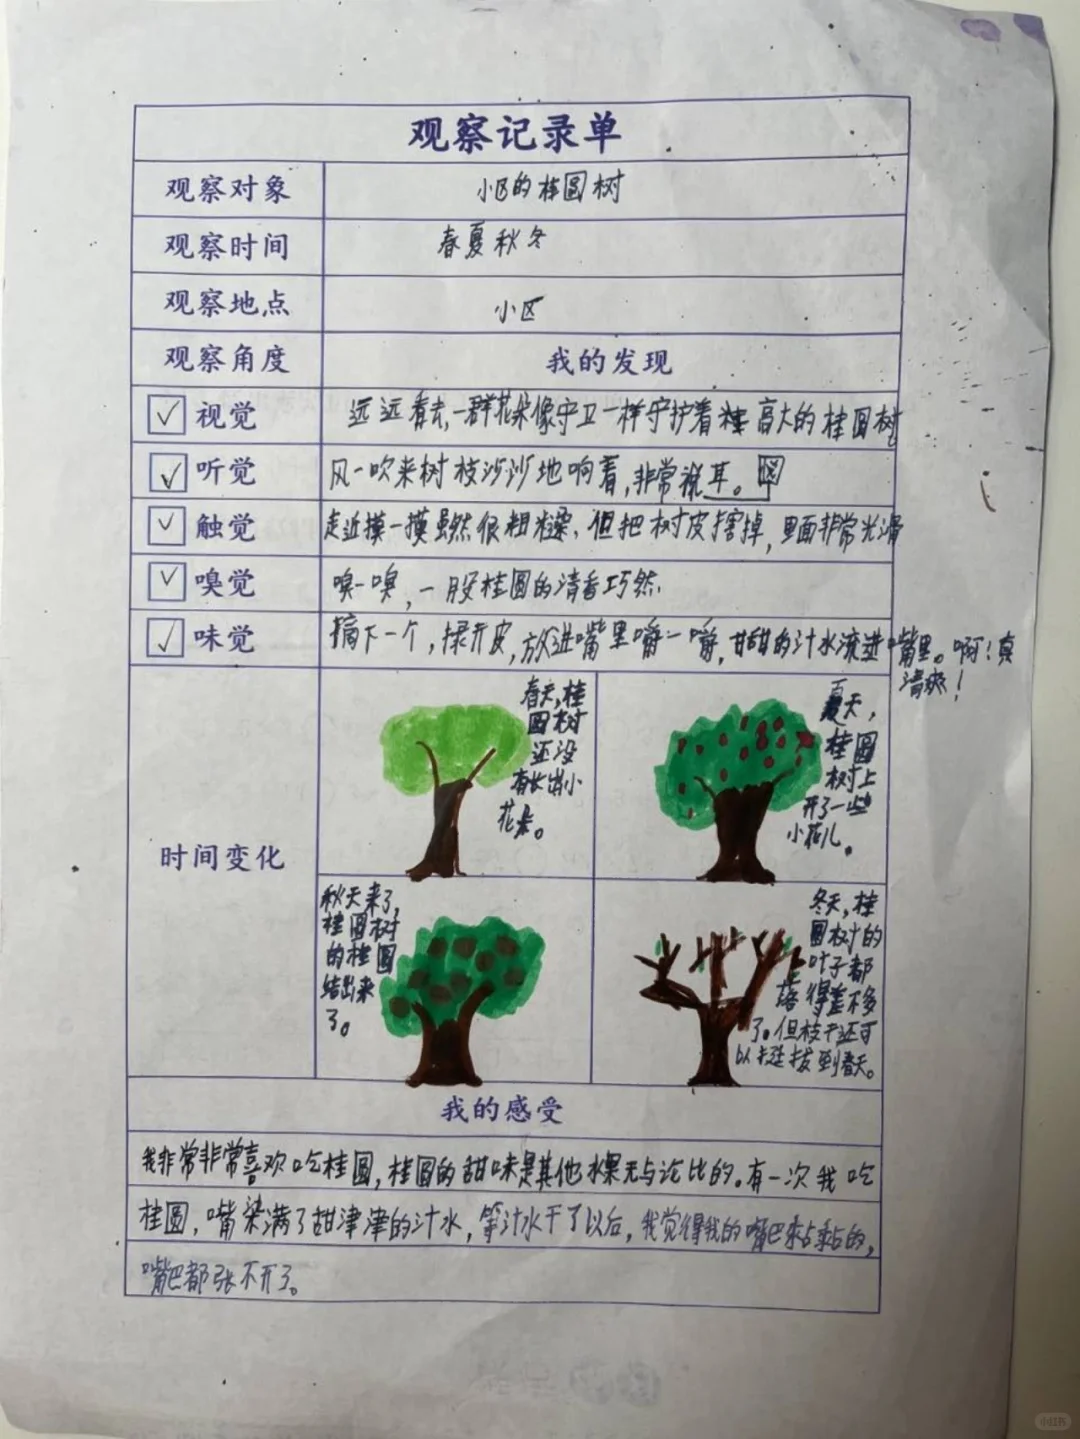 观察记录单
观察对象 小区的桂圆树
观察时间 春夏秋冬
观察地点 小区
观察角度 我的发现
视觉 远远看去,一群花朵像守卫一样守护着 高大的桂圆树
听觉 风一吹来树枝沙沙地响着,非常 耳。
触觉 走近摸一摸虽然很粗糙,但把树皮 掉,里面非常光滑
嗅觉 嗅一嗅,一股桂圆的清香巧然.
味觉 摘下一个,拨开皮,放进嘴里嚼一嚼,甘甜的汁水流进嘴里。啊!真
清爽!
时间变化
春天,桂
圆树
还没
有长出小
花朵。
夏天,
桂圆
树上
开了一些
小花儿。
秋天来了,
桂圆树
的桂圆
结出来
了。
冬天,桂
圆树的
叶子都
落得差不多
了。但枝干还可
以挺拔到春天。
我的感受
我非常非常喜欢吃桂圆,桂圆的甜味是其他水果无与沦比的。有一次我吃
桂圆,嘴染满了甜津津的汁水,等汁水干了以后,我觉得我的嘴巴黏黏的,
嘴巴都张不开了。
小红书